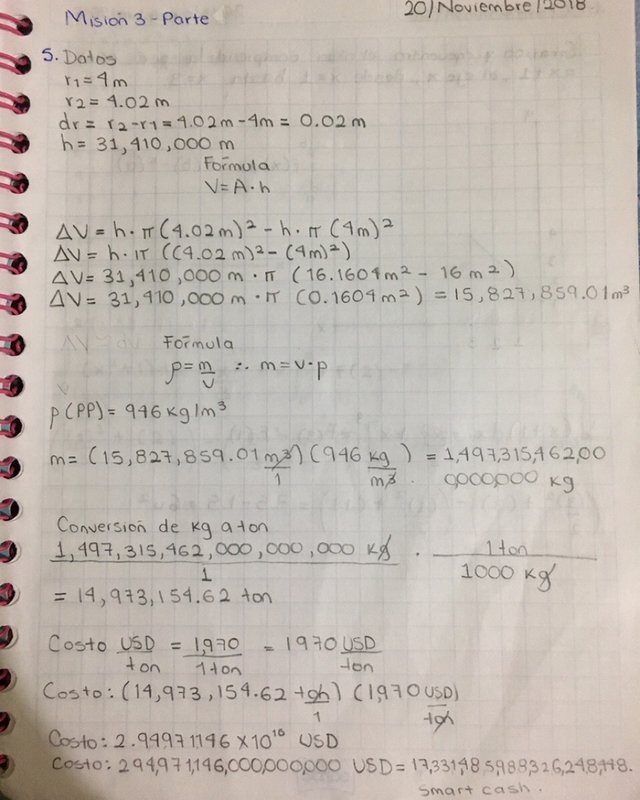 20/Noviembre/2018
Misión 3 - Parte
5. Datos
r1 = 4m
r2 = 4.02 m
dr = r2 - r1 = 4.02m - 4m = 0.02m
h = 31,410,000 m
Fórmula
V = A · h
ΔV = h · π (4.02m)² - h · π (4m)²
ΔV = h · π ((4.02m)² - (4m)²)
ΔV = 31,410,000 m · π (16.1604m² - 16 m²)
ΔV = 31,410,000 m · π (0.1604m²) = 15,827,859.01m³
Fórmula
ρ = m/v ∴ m = v · p
p (PP) = 946 kg/m³
m = (15,827,859.01 m³/1) (946 kg/m³) = 1,497,315,462,00
0,000,000 kg
Conversión de kg a ton
1,497,315,462,000,000,000 kg/1 · 1 ton/1000 kg
= 14,973,154.62 ton
Costo USD/ton = 1,970/1 ton = 1970 USD/ton
Costo: (14,973,154.62 ton/1) (1,970 USD/ton)
Costo: 2.94971146 x 10¹⁶ USD
Costo: 294,971,146,000,000,000 USD = 17,331,48 5,988,326,248,448.
smart cash.